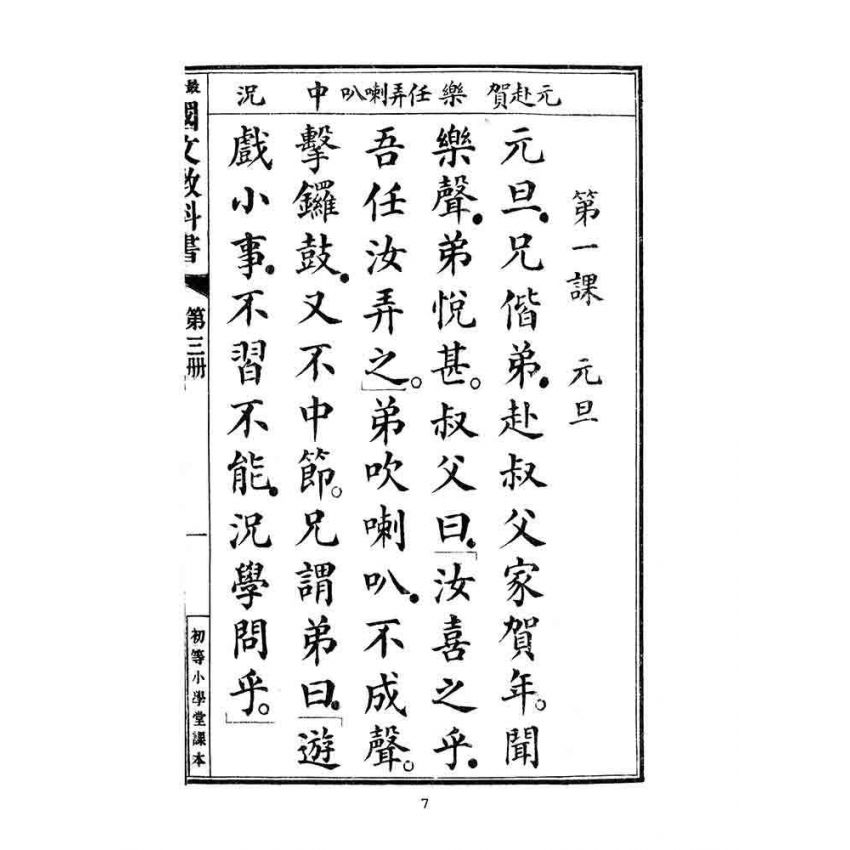 元赴賀 樂 任弄喇叭 中 況
第一課 元旦
元旦．兄偕弟．赴叔父家賀年。聞
樂聲．弟悅甚。叔父曰．「汝喜之乎．
吾任汝弄之」。弟吹喇叭．不成聲。
擊鑼鼓．又不中節。兄謂弟曰．「遊
戲小事．不習不能．況學問乎。」
最
國文教科書
第三册
一
初等小學堂課本
7